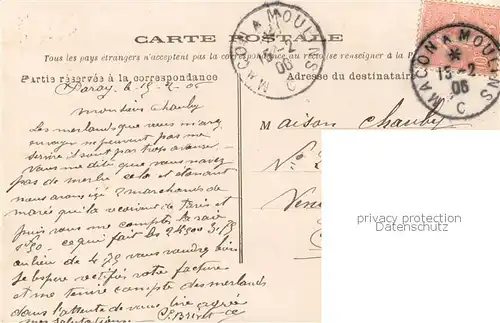 CARTE POSTALE
Tous les pays étrangers n'acceptent pas la correspondance au recto se renseigner à la P
Partis réservée à la correspondance
Adresse du destinataire
MACON A MOULINS
15-2
06
C
MACON A MOULINS
15-2
06
C
Paray le 15-2-06
Monsieur Chauby
Les merlands que vous m'avez
envoyé ne peuvent pas me
servir il sont pas trois
vous me dite que vous navez
pas de merlu cela et étonant
nous avons ici 2 marchands de
marée qui la recoivent de Paris et
puis vous me comptez la raie
1.50 ce qui fait les
au lieu de 4.70 vous voudrez bien
rectifiés votre facture
et me tenire compte des merlands
dans l'attente de vous lire agréez
mes salutations
Maison Chauby
No
Ven
privacy protection
Datenschutz